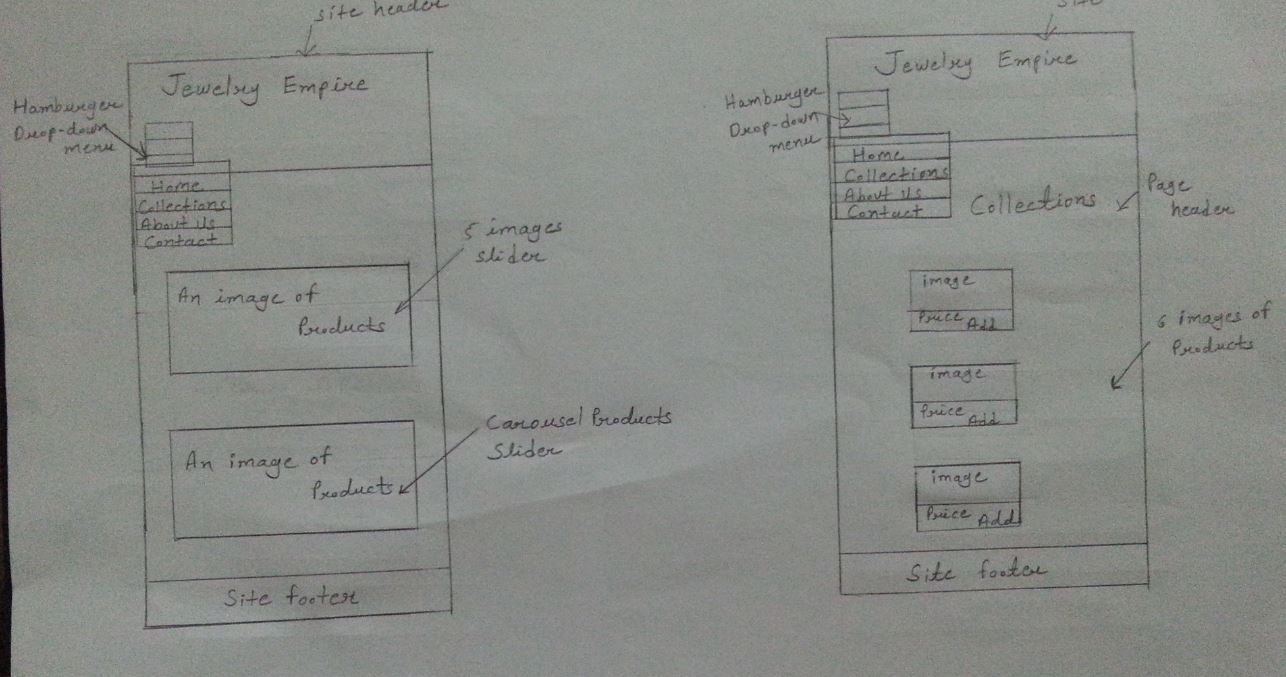 site header
Jewelry Empire
Hamburger
Drop-down
menu
Home
Collections
About Us
Contact
5 images
slider
An image of
Products
Carousel Products
Slider
An image of
Products
Site footer
Jewelry Empire
Hamburger
Drop-down
menu
Home
Collections
About Us
Contact
Collections
Page
header
image
Price Add
6 images of
Products
image
Price Add
image
Price Add
Site footer